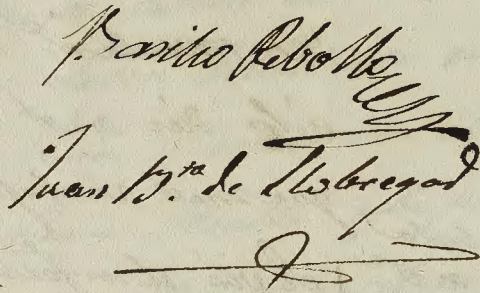 Basilio Rebollo
Juan B.ta de Llobregad